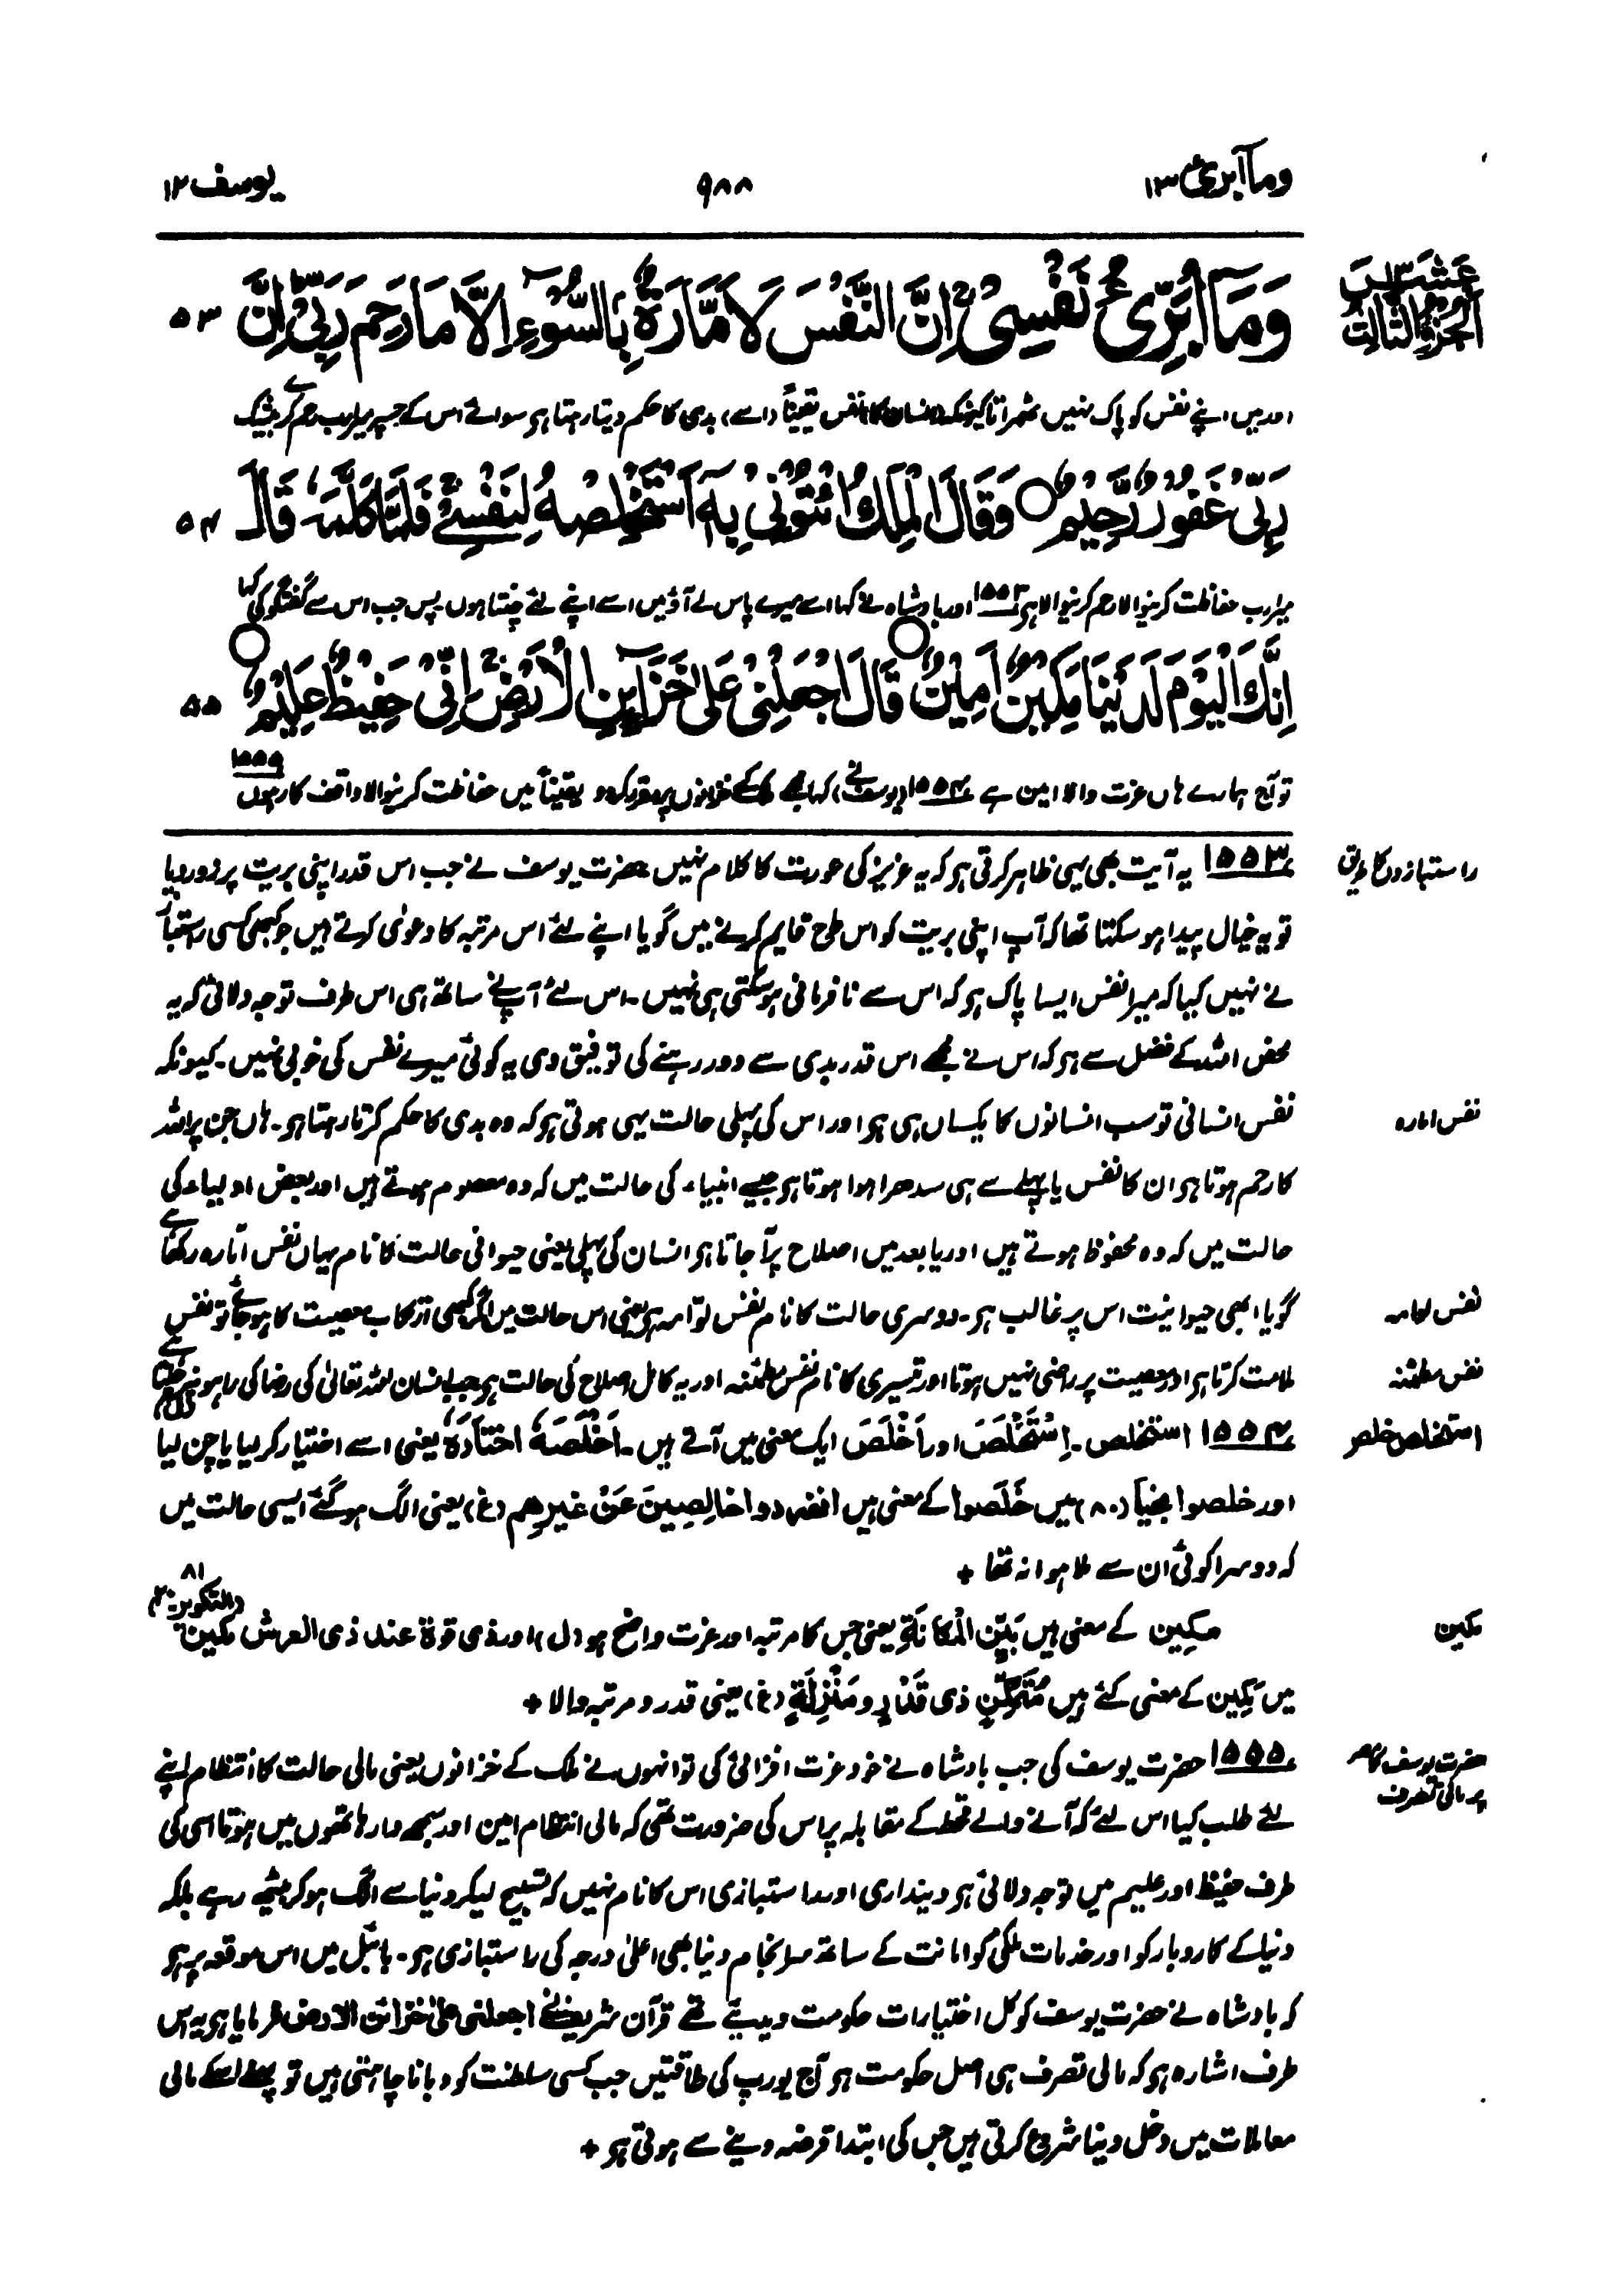 وماآبرئ ۱۳
۹۸۸
یوسف ۱۲
الجزء الثالث عشر
وَمَآ اُبَرِّئُ نَفْسِیْ ۚ اِنَّ النَّفْسَ لَاَمَّارَةٌۢ بِالسُّوْٓءِ اِلَّا مَا رَحِمَ رَبِّیْ ؕ اِنَّ ۵۳
اور میں اپنے نفس کو پاک نہیں ٹھہراتا کیونکہ (انسان کا) نفس یقیناً (اسے) بدی کا حکم دیتا رہتا ہر سوائے اس کے جسپر میرا رب رحم کرے بیشک
رَبِّیْ غَفُوْرٌ رَّحِیْمٌ ○ وَقَالَ الْمَلِكُ ائْتُوْنِیْ بِهٖٓ اَسْتَخْلِصْهُ لِنَفْسِیْ ۚ فَلَمَّا كَلَّمَهٗ قَالَ ۵۴
میرا رب حفاظت کرنیوالا رحم کرنیوالا ہر ۱۵۵۳ اور بادشاہ نے کہا اسے میرے پاس لے آؤ میں اسے اپنے لئے چنتا ہوں پس جب اس سے گفتگو کی کہا
اِنَّكَ الْیَوْمَ لَدَیْنَا مَكِیْنٌ اَمِیْنٌ ○ قَالَ اجْعَلْنِیْ عَلٰی خَزَآىِٕنِ الْاَرْضِ ۚ اِنِّیْ حَفِیْظٌ عَلِیْمٌ ○ ۵۵
تو آج ہمارے ہاں عزت والا امین ہے ۱۵۵۴ (یوسف نے) کہا مجھے ملک کے خزانوں پر مقرر کردو یقیناً میں حفاظت کرنیوالا واقف کار ہوں ۱۵۵۵
راستبازوں کا طریق
۱۵۵۳ یہ آیت بھی یہی ظاہر کرتی ہر کہ یہ عزیز کی عورت کا کلام نہیں حضرت یوسف نے جب اس قدر اپنی بریت پر زور دیا
تو یہ خیال پیدا ہو سکتا تھا کہ آپ اپنی بریت کو اس طرح قایم کرنے میں گویا اپنے لئے اس مرتبہ کا دعوٰی کرتے ہیں جو کبھی کسی راستباز
نے نہیں کیا کہ میرا نفس ایسا پاک ہر کہ اس سے نافرمانی ہو سکتی ہی نہیں۔ اس لئے آپ نے ساتھ ہی اس طرف توجہ دلائی کہ یہ
محض اللہ کے فضل سے ہر کہ اس نے مجھے اس قدر بدی سے دور رہنے کی توفیق دی یہ کوئی میرے نفس کی خوبی نہیں۔ کیونکہ
نفس امارہ
نفس انسانی تو سب انسانوں کا یکساں ہی ہر اور اس کی پہلی حالت یہی ہوتی ہر کہ وہ بدی کا حکم کرتا رہتا ہر۔ ہاں جن پر اللہ
کا رحم ہوتا ہر ان کا نفس یا پہلے سے ہی سدھرا ہوا ہوتا ہر جیسے انبیاء کی حالت میں کہ وہ معصوم ہوتے ہیں اور بعض اولیاء کی
حالت میں کہ وہ محفوظ ہوتے ہیں اور یا بعد میں اصلاح پر آ جاتا ہر انسان کی پہلی یعنی حیوانی حالت کا نام یہاں نفس امّارہ رکھا ہے
نفس لوامہ
گویا ابھی حیوانیت اس پر غالب ہر۔ دوسری حالت کا نام نفس لوّامہ ہر یعنی اس حالت میں اگر کبھی ارتکاب معصیت کا ہو جائے تو نفس
نفس مطمئنہ
ملامت کرتا ہر اور معصیت پر راضی نہیں ہوتا اور تیسری کا نام نفس مطمئنہ اور یہ کامل اصلاح کی حالت ہر جب انسان اللہ تعالیٰ کی رضا کی راہوں پر چلتا ہے
استخلاص خلص
۱۵۵۴ استخلص۔ اِسْتَخْلَصَ اور اَخْلَصَ ایک معنی میں آتے ہیں۔ اَخْلَصَهٗ اختارَهٗ یعنی اسے اختیار کر لیا یا چن لیا
اور خلصوا نجیاً (۸۰) میں خَلَصوا کے معنی ہیں انفردوا خالِصِینَ عَنْ غیرِهم (غ) یعنی الگ ہو گئے ایسی حالت میں
کہ دوسرا کوئی ان سے ملا ہوا نہ تھا +
مکین
مَكِین کے معنی ہیں بَيِّن الْمَكانَةِ یعنی جس کا مرتبہ اور عزت واضح ہو (ل) اور ذی قوة عند ذی العرش مکین (التکویر ۸۱: ۲۰)
میں مَکِین کے معنی کئے ہیں مُتَمَكِّنٍ ذی قَدْرٍ و مَنْزِلَةٍ (غ) یعنی قدر و مرتبہ والا +
حضرت یوسف کا مصر پر مالی تصرف
۱۵۵۵ حضرت یوسف کی جب بادشاہ نے خود عزت افزائی کی تو انہوں نے ملک کے خزانوں یعنی مالی حالت کا انتظام اپنے
لئے طلب کیا اس لئے کہ آنے والے قحط کے مقابلہ پر اس کی ضرورت تھی کہ مالی انتظام امین اور سمجھدار ہاتھوں میں ہوتا اسی کی
طرف حفیظ اور علیم میں توجہ دلائی ہر دینداری اور راستبازی اس کا نام نہیں کہ تسبیح لیکر دنیا سے الگ ہو کر بیٹھ رہے بلکہ
دنیا کے کاروبار کو اور خدمات ملکی کو امانت کے ساتھ سرانجام دینا بھی اعلیٰ درجہ کی راستبازی ہر۔ بائبل میں اس موقعہ پر ہر
کہ بادشاہ نے حضرت یوسف کو کل اختیارات حکومت دیدیئے تھے قرآن شریف نے اجعلنی علی خزائن الارض فرمایا ہر یہ اس
طرف اشارہ ہر کہ مالی تصرف ہی اصل حکومت ہر آج یورپ کی طاقتیں جب کسی سلطنت کو دبانا چاہتی ہیں تو پہلے اسکے مالی
معاملات میں دخل دینا شروع کرتی ہیں جس کی ابتدا قرضہ دینے سے ہوتی ہر +